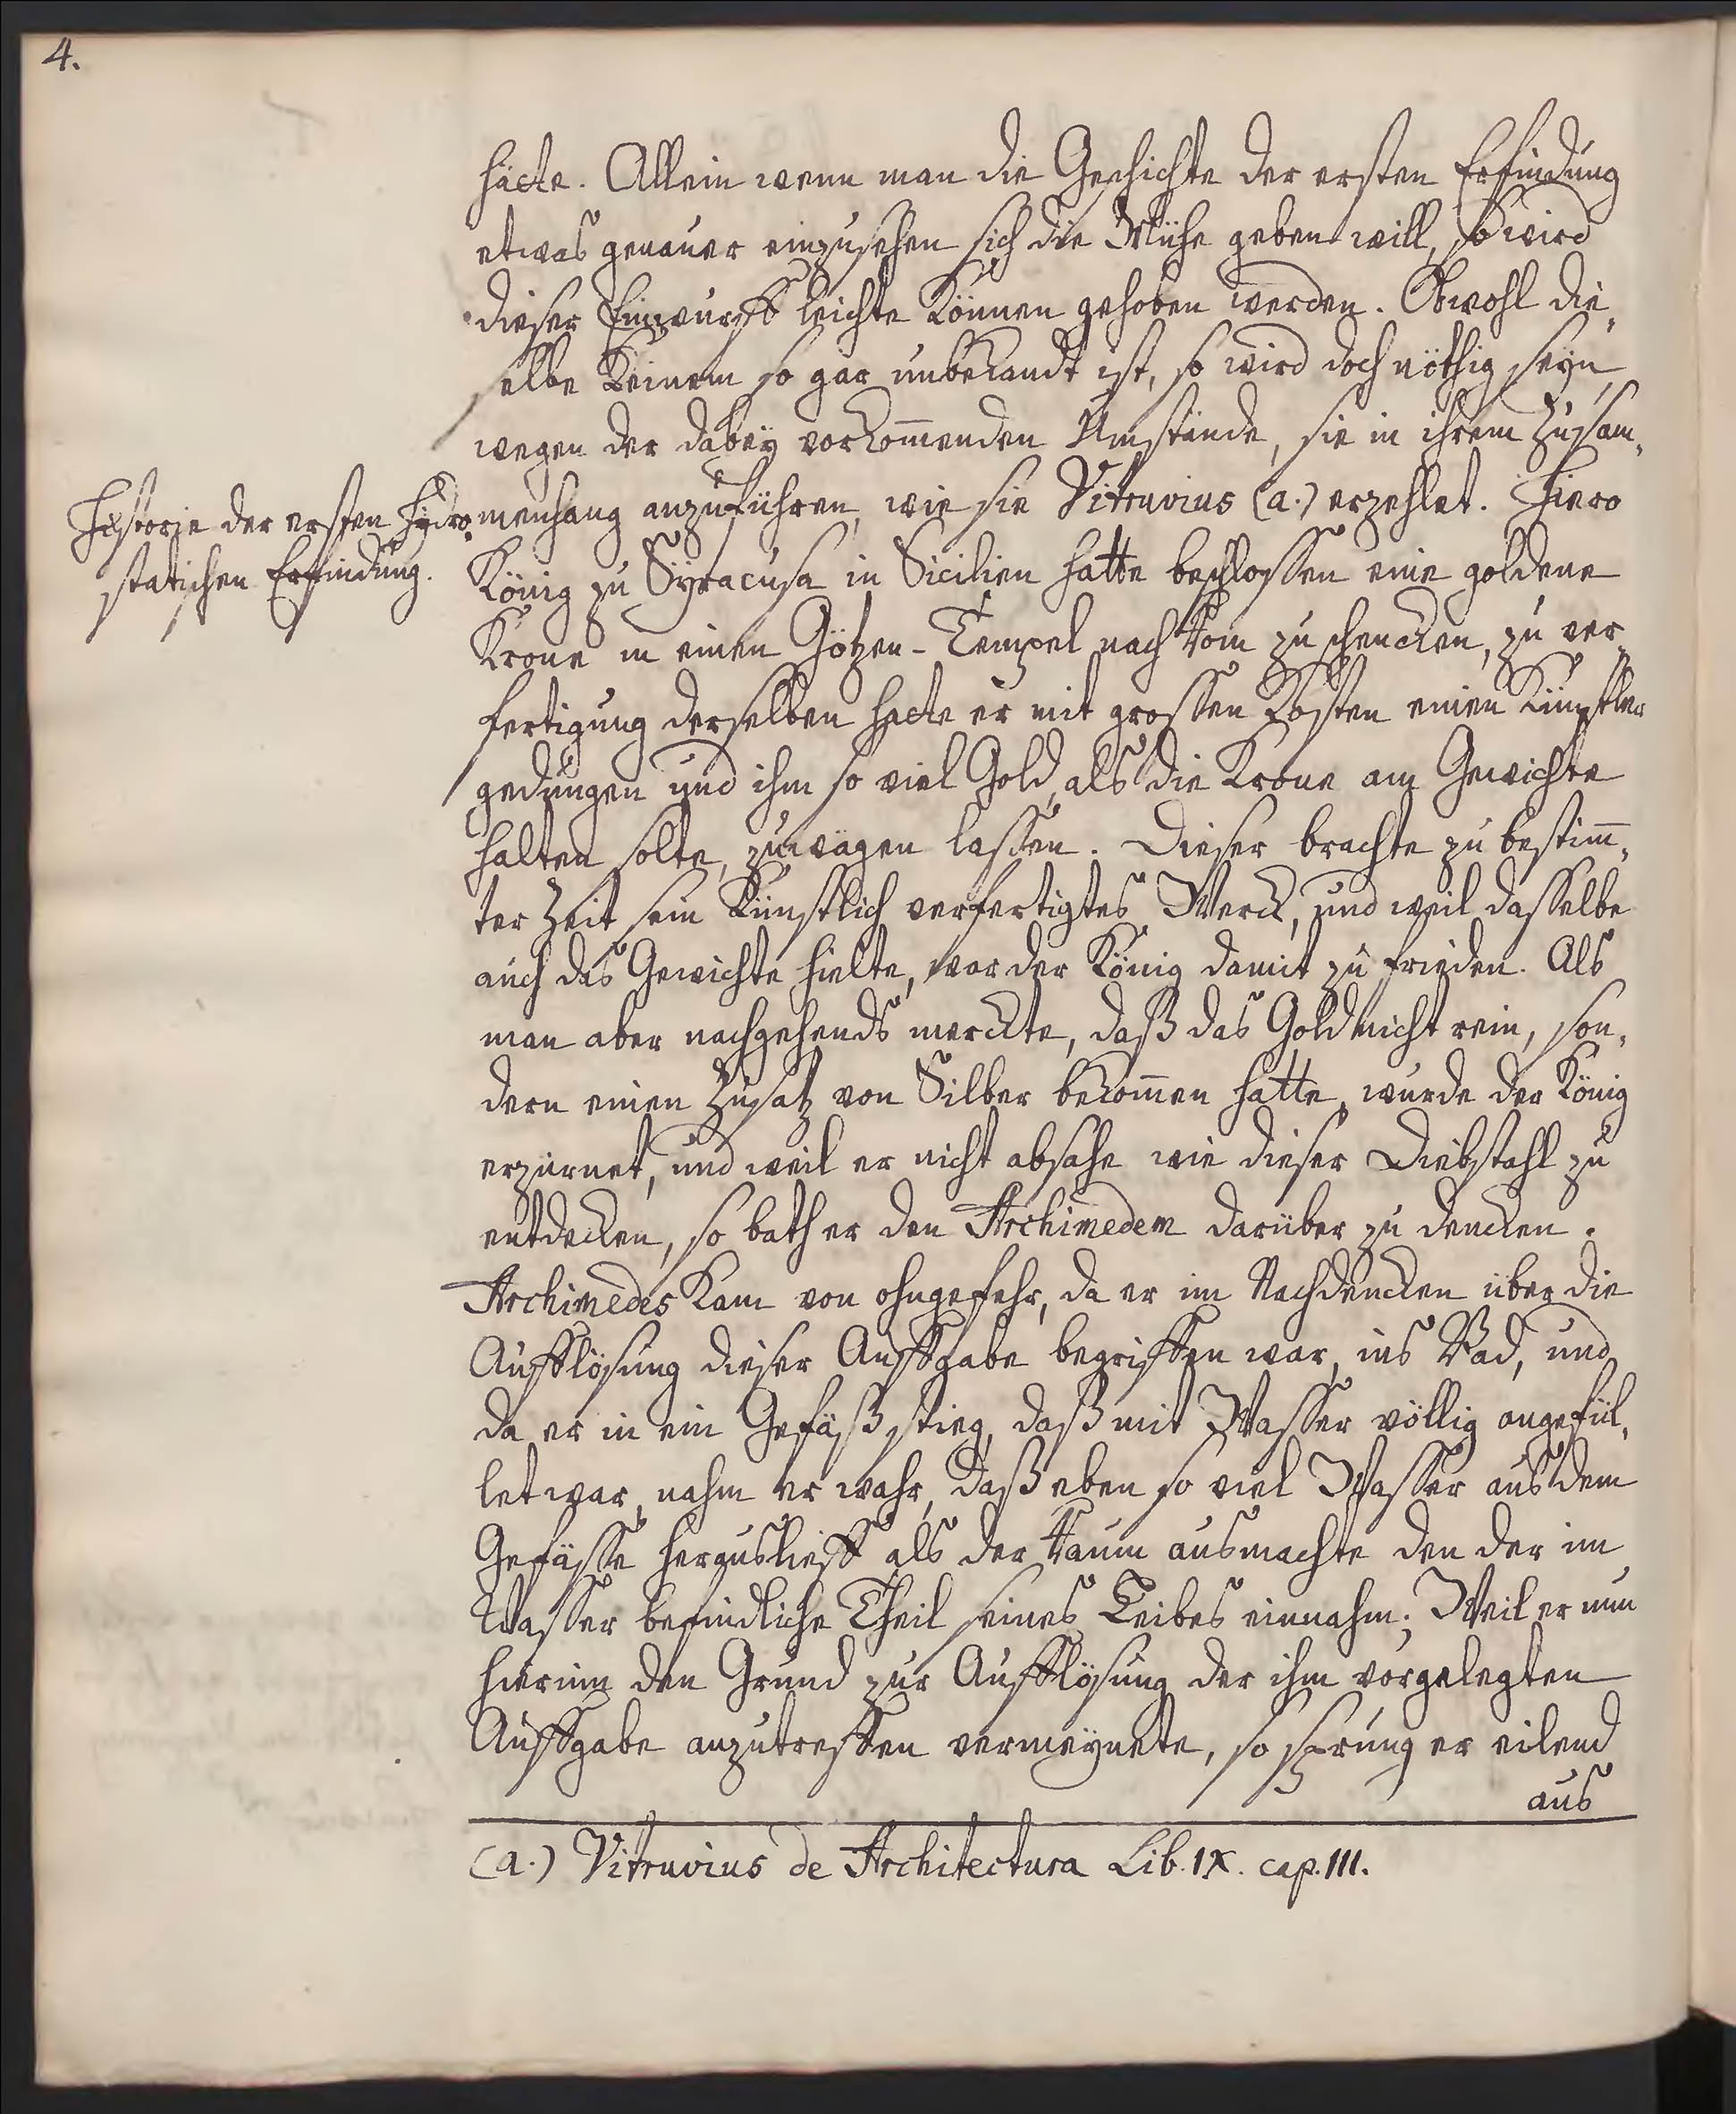 4.
hätte. Allein wenn man die Geschichte der ersten Erfindung
etwas genauer einzusehen sich die Mühe geben will, so wird
dieser Einwurff leichte können gehoben werden. Obwohl die„
selbe keinem so gar unbekandt ist, so wird doch nöthig seyn
wegen der dabey vorkom̄enden Umstände, sie in ihrem Zusam„
Historie der ersten Hydro„
statischen Erfindung.
menhang anzuführen, wie sie Vitruvius (a.) erzehlet. Hiero
König zu Syracusa in Sicilien hatte beschlossen eine goldene
Krone in einen Götzen-Tempel nach Rom zu schencken, zu ver„
fertigung derselben hatte er mit grossen Kosten einen Künstler
gedungen und ihm so viel Gold, als die Krone am Gewichte
halten solte, zuwägen lassen. Dieser brachte zu bestim̄„
ter Zeit sein künstlich verfertigtes Werck, und weil dasselbe
auch das Gewichte hielte, war der König damit zu frieden. Als
man aber nachgehends merckte, daß das Gold nicht rein, son„
dern einen Zusatz von Silber bekom̄en hatte, wurde der König
erzürnet, und weil er nicht absahe wie dieser Diebstahl zu
entdecken, so bath er den Archimedem darüber zu dencken.
Archimedes kam von ohngefehr, da er im Nachdencken über die
Aufflösung dieser Auffgabe begriffen war, ins Bad, und
da er in ein Gefäß stieg, daß mit Wasser völlig angefül„
let war, nahm er wahr, daß eben so viel Wasser aus dem
Gefässe herauslieff als der Raum ausmachte den der im
Wasser befindliche Theil seines Leibes einnahm; Weil er nun
hierinn den Grund zur Aufflösung der ihm vorgelegten
Auffgabe anzutreffen vermeynete, so sprung er eilend
aus
(a.) Vitruvius de Architectura Lib. IX. cap. III.